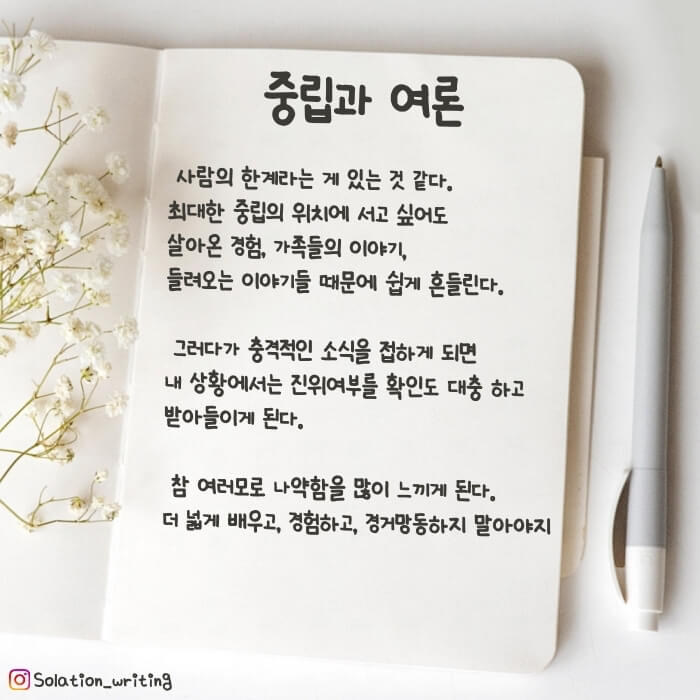 중립과 여론
사람의 한계라는 게 있는 것 같다.
최대한 중립의 위치에 서고 싶어도
살아온 경험, 가족들의 이야기,
들려오는 이야기들 때문에 쉽게 흔들린다.
그러다가 충격적인 소식을 접하게 되면
내 상황에서는 진위여부를 확인도 대충 하고
받아들이게 된다.
참 여러모로 나약함을 많이 느끼게 된다.
더 넓게 배우고, 경험하고, 경거망동하지 말아야지
Solation_writing